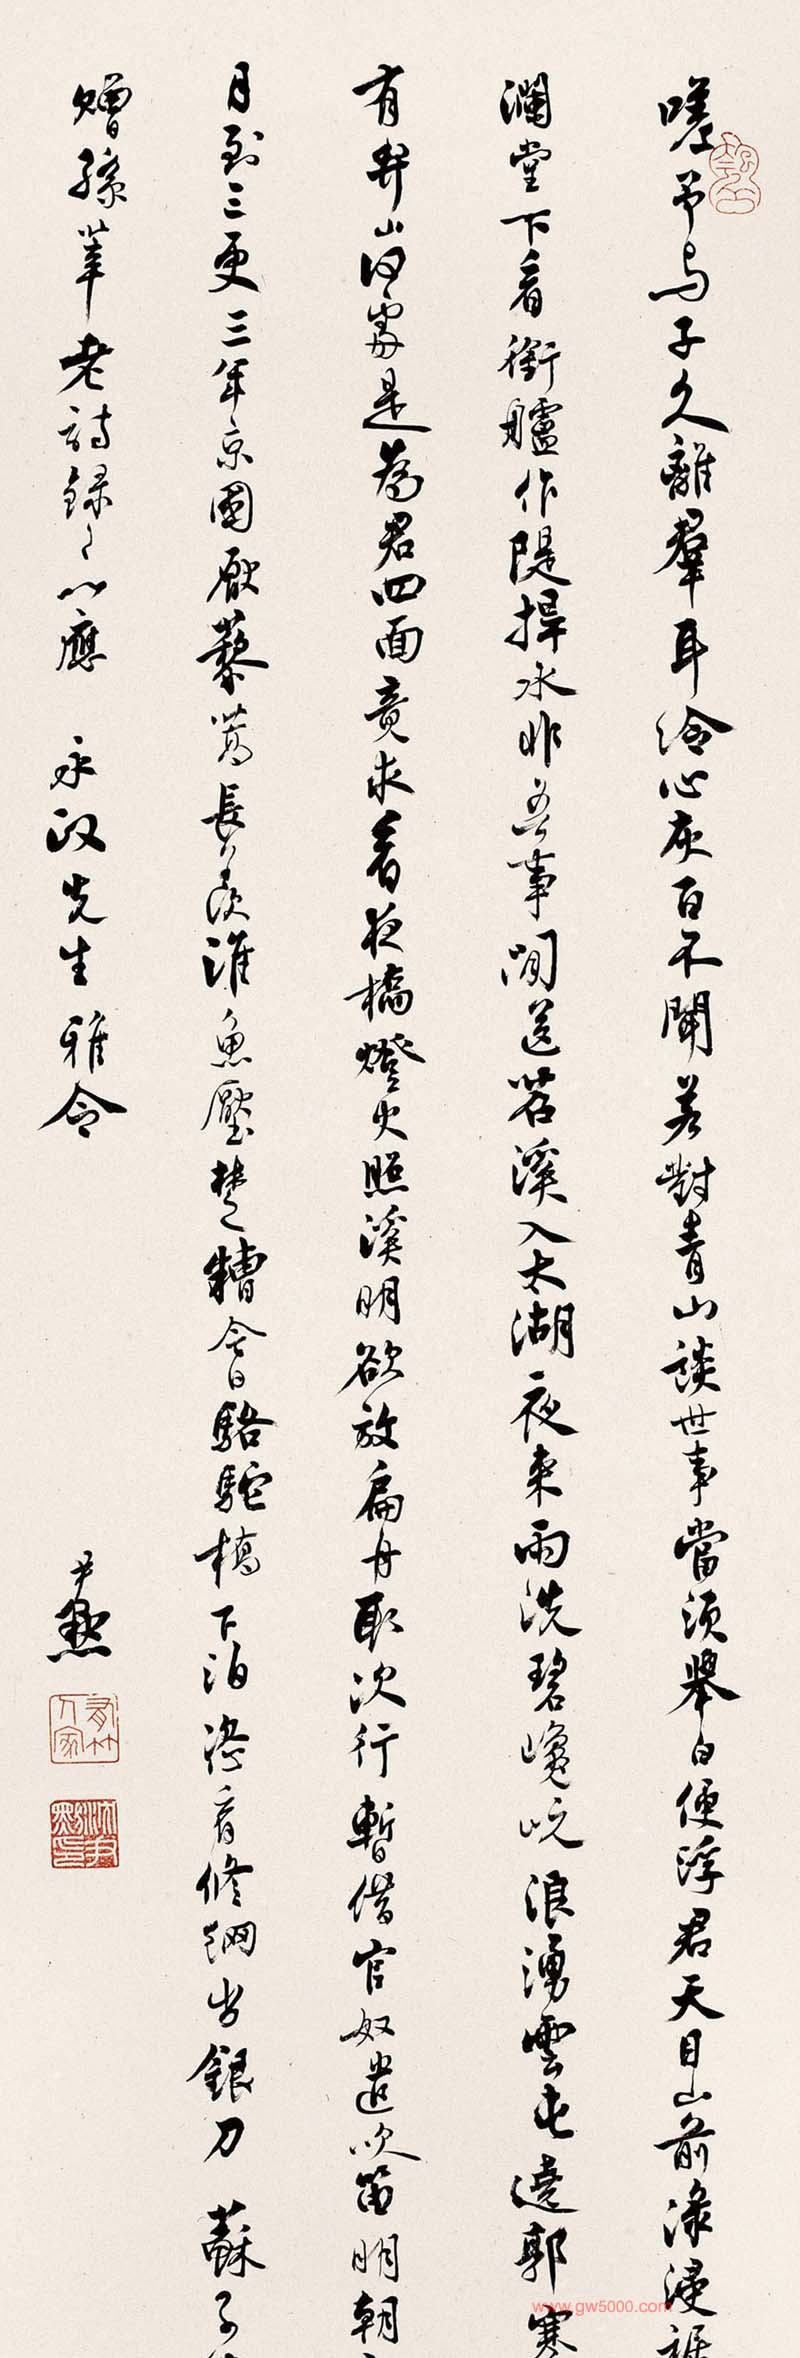 嗟予与子久離羣耳冷心灰百不聞若對青山談世事當須舉白便浮君天目山前淥浸裾
瀾堂下看銜艫作隄捍水非吾事閒送苕溪入太湖夜來雨洗碧巑岏浪湧雲屯遶郭寒
有弁山何處是為君四面竟求看夜橋燈火照溪明欲放扁舟取次行暫借官奴遣吹笛明朝
月到三更三年京國厭藜蒿長羨淮魚壓楚糟今日駱駝橋下泊恣看修網出銀刀 蘇子
贈孫莘老詩錄之以應 永政先生雅令
尹默
沈尹默印
www.gw5000.com